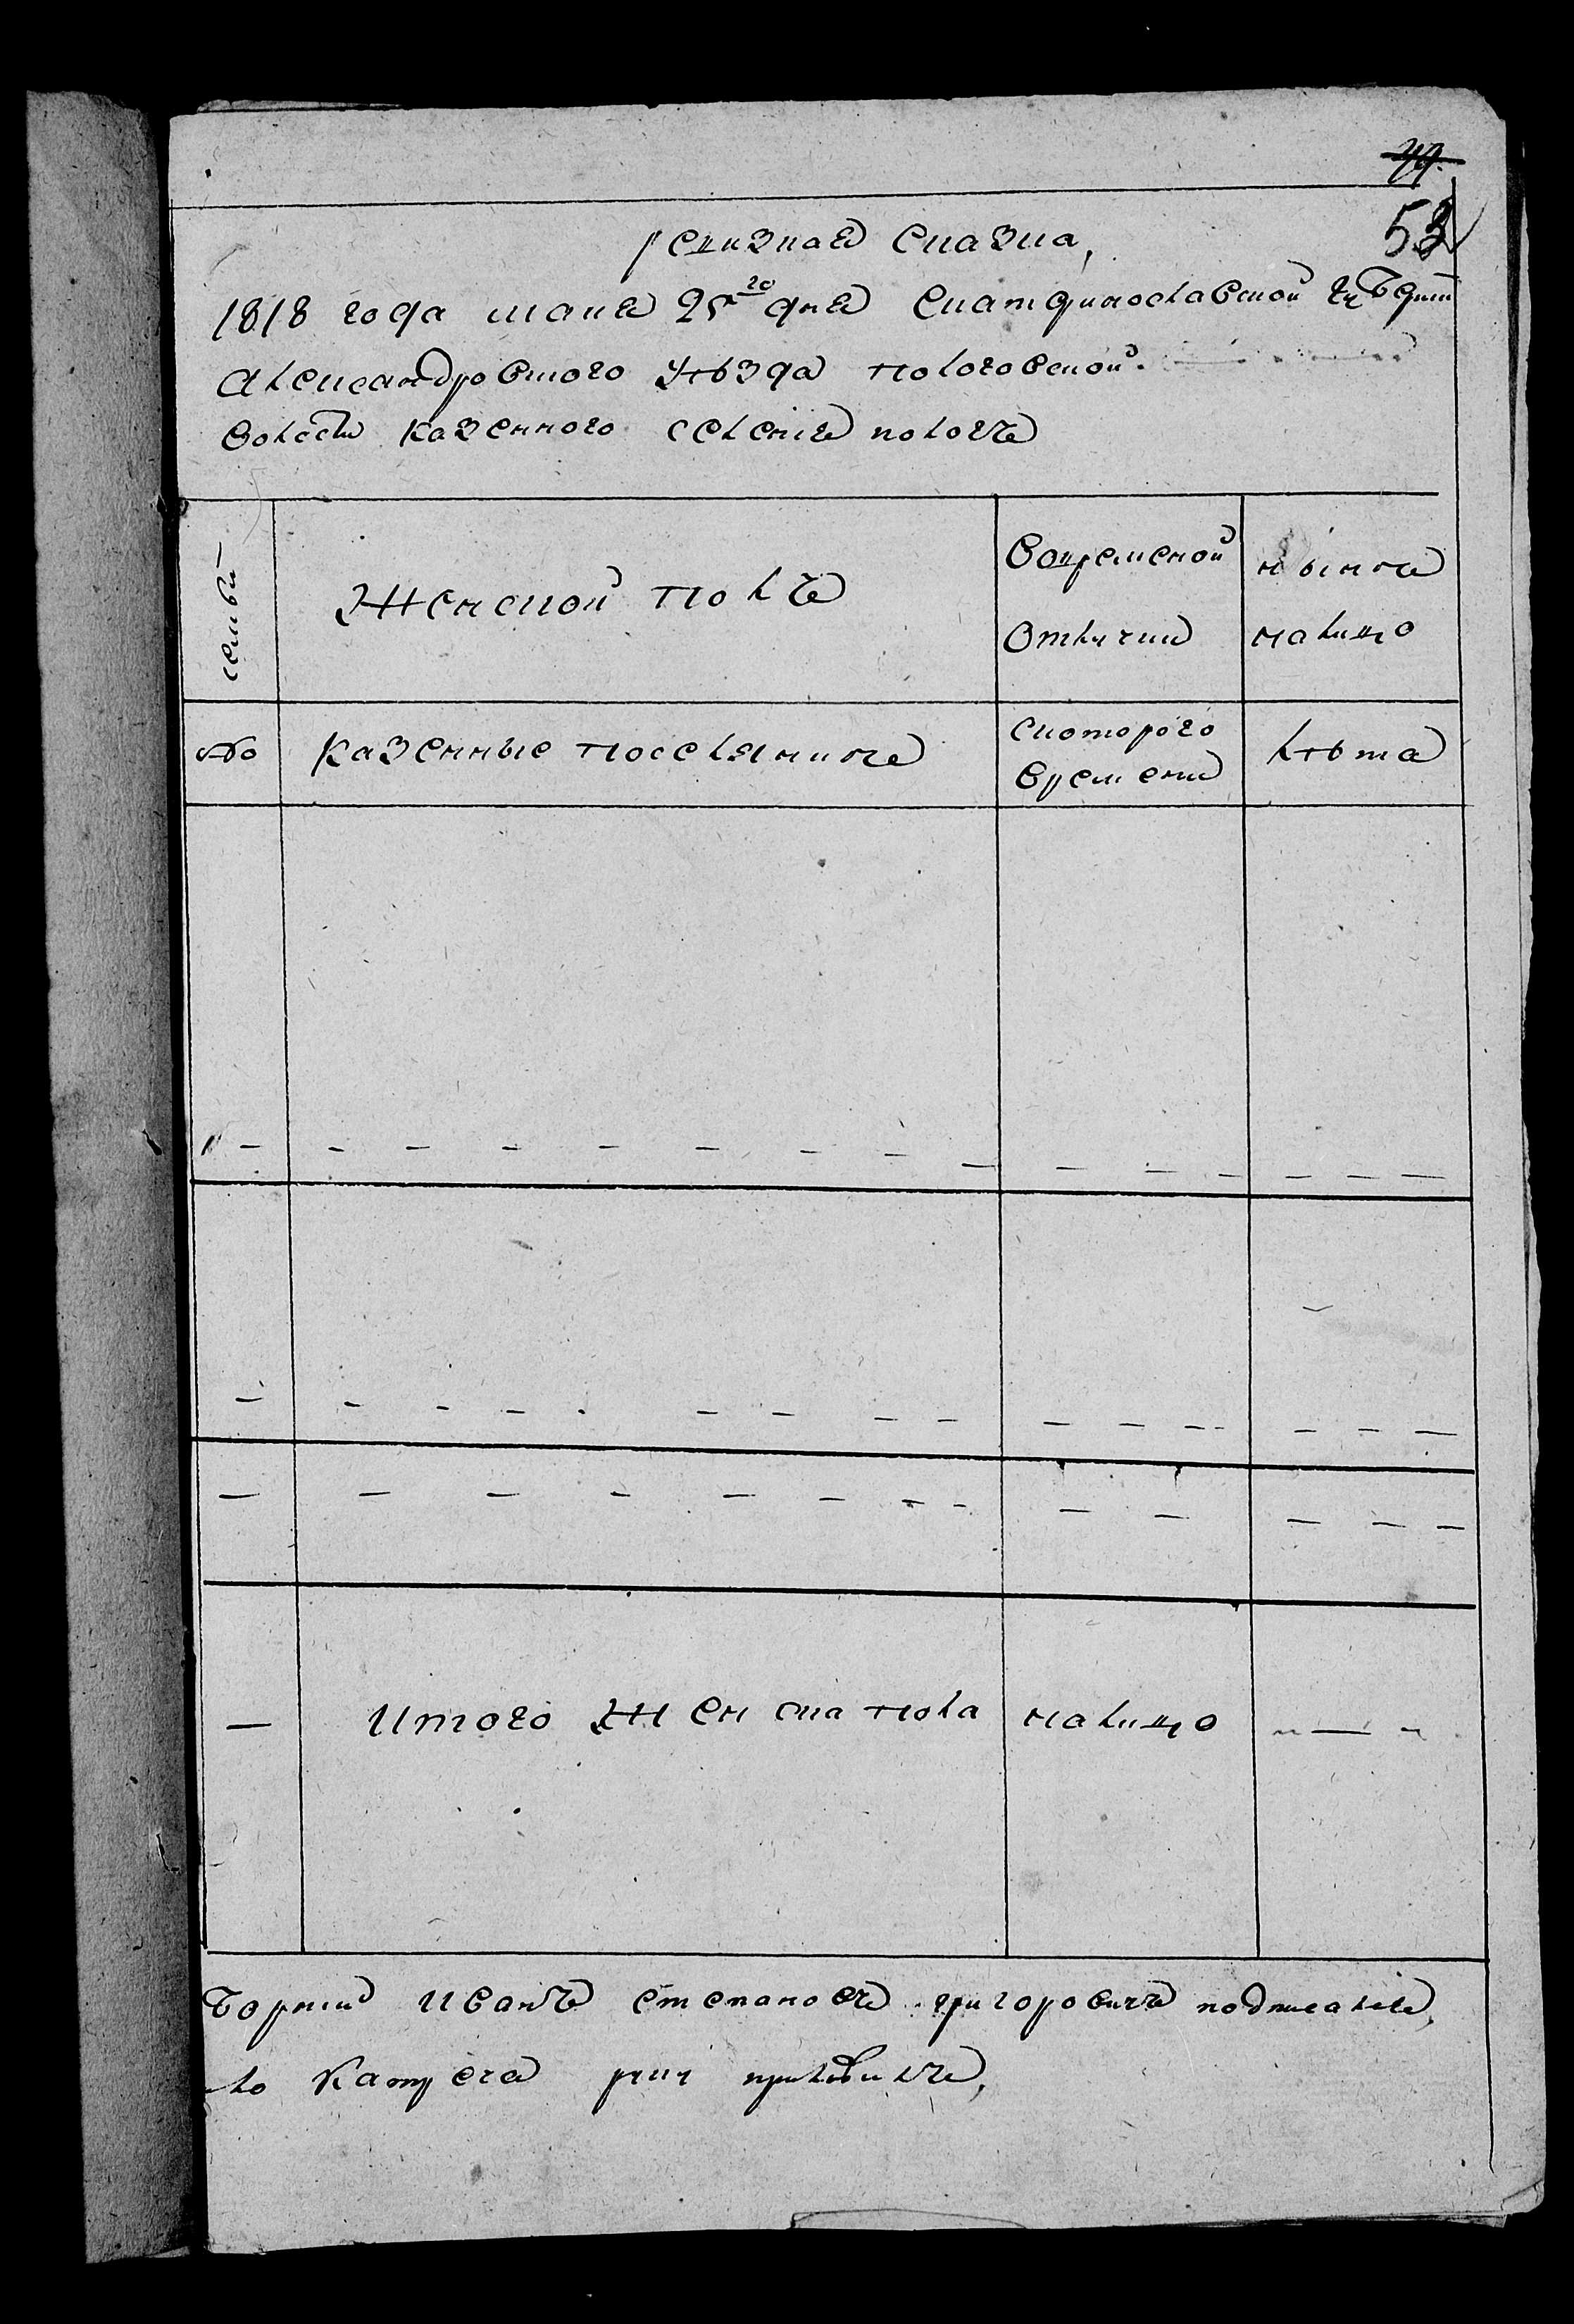 53
ревизная сказка,
1818 года маия 25го дня Екатеринославской губернии
Александровского уѣзда пологовской
волости казенного селения пологъ
семьи
Женской полъ
Вовременой отлучки
нынѣ налицо
№
казенные поселяники
с которого времени
лѣта
Итого женска пола налицо
Иванъ степановъ григоровичъ подписался,
приложилъ,